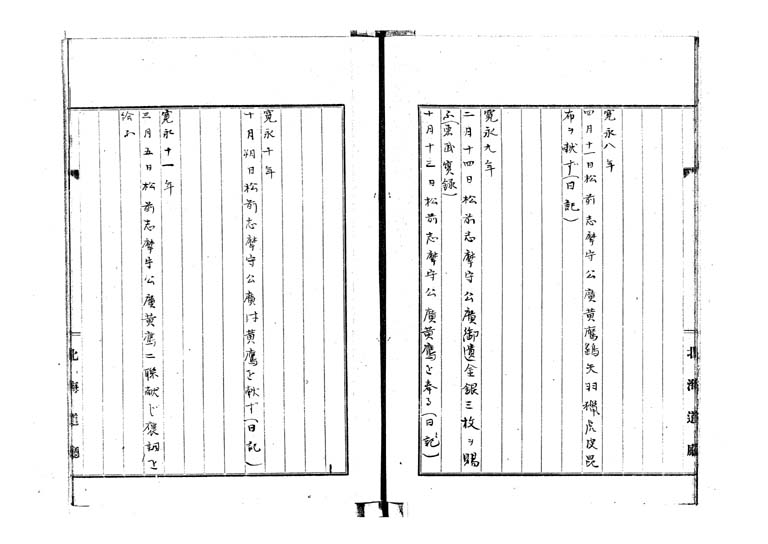 寛永八年
四月十一日松前志摩守公廣黄鷹鷂矢羽獵虎皮昆
布ヲ献ず(日記)
寛永九年
二月十四日松前志摩守公廣御遺金銀三枚ヲ賜
ふ(東武實録)
十月十三日松前志摩守公廣黄鷹を奉る(日記)
北海道廳
寛永十年
十月朔日松前志摩守公廣は黄鷹を献ず(日記)
寛永十一年
三月五日松前志摩守公廣黄鷹二聯献じ褒詞を
給ふ
北海道廳